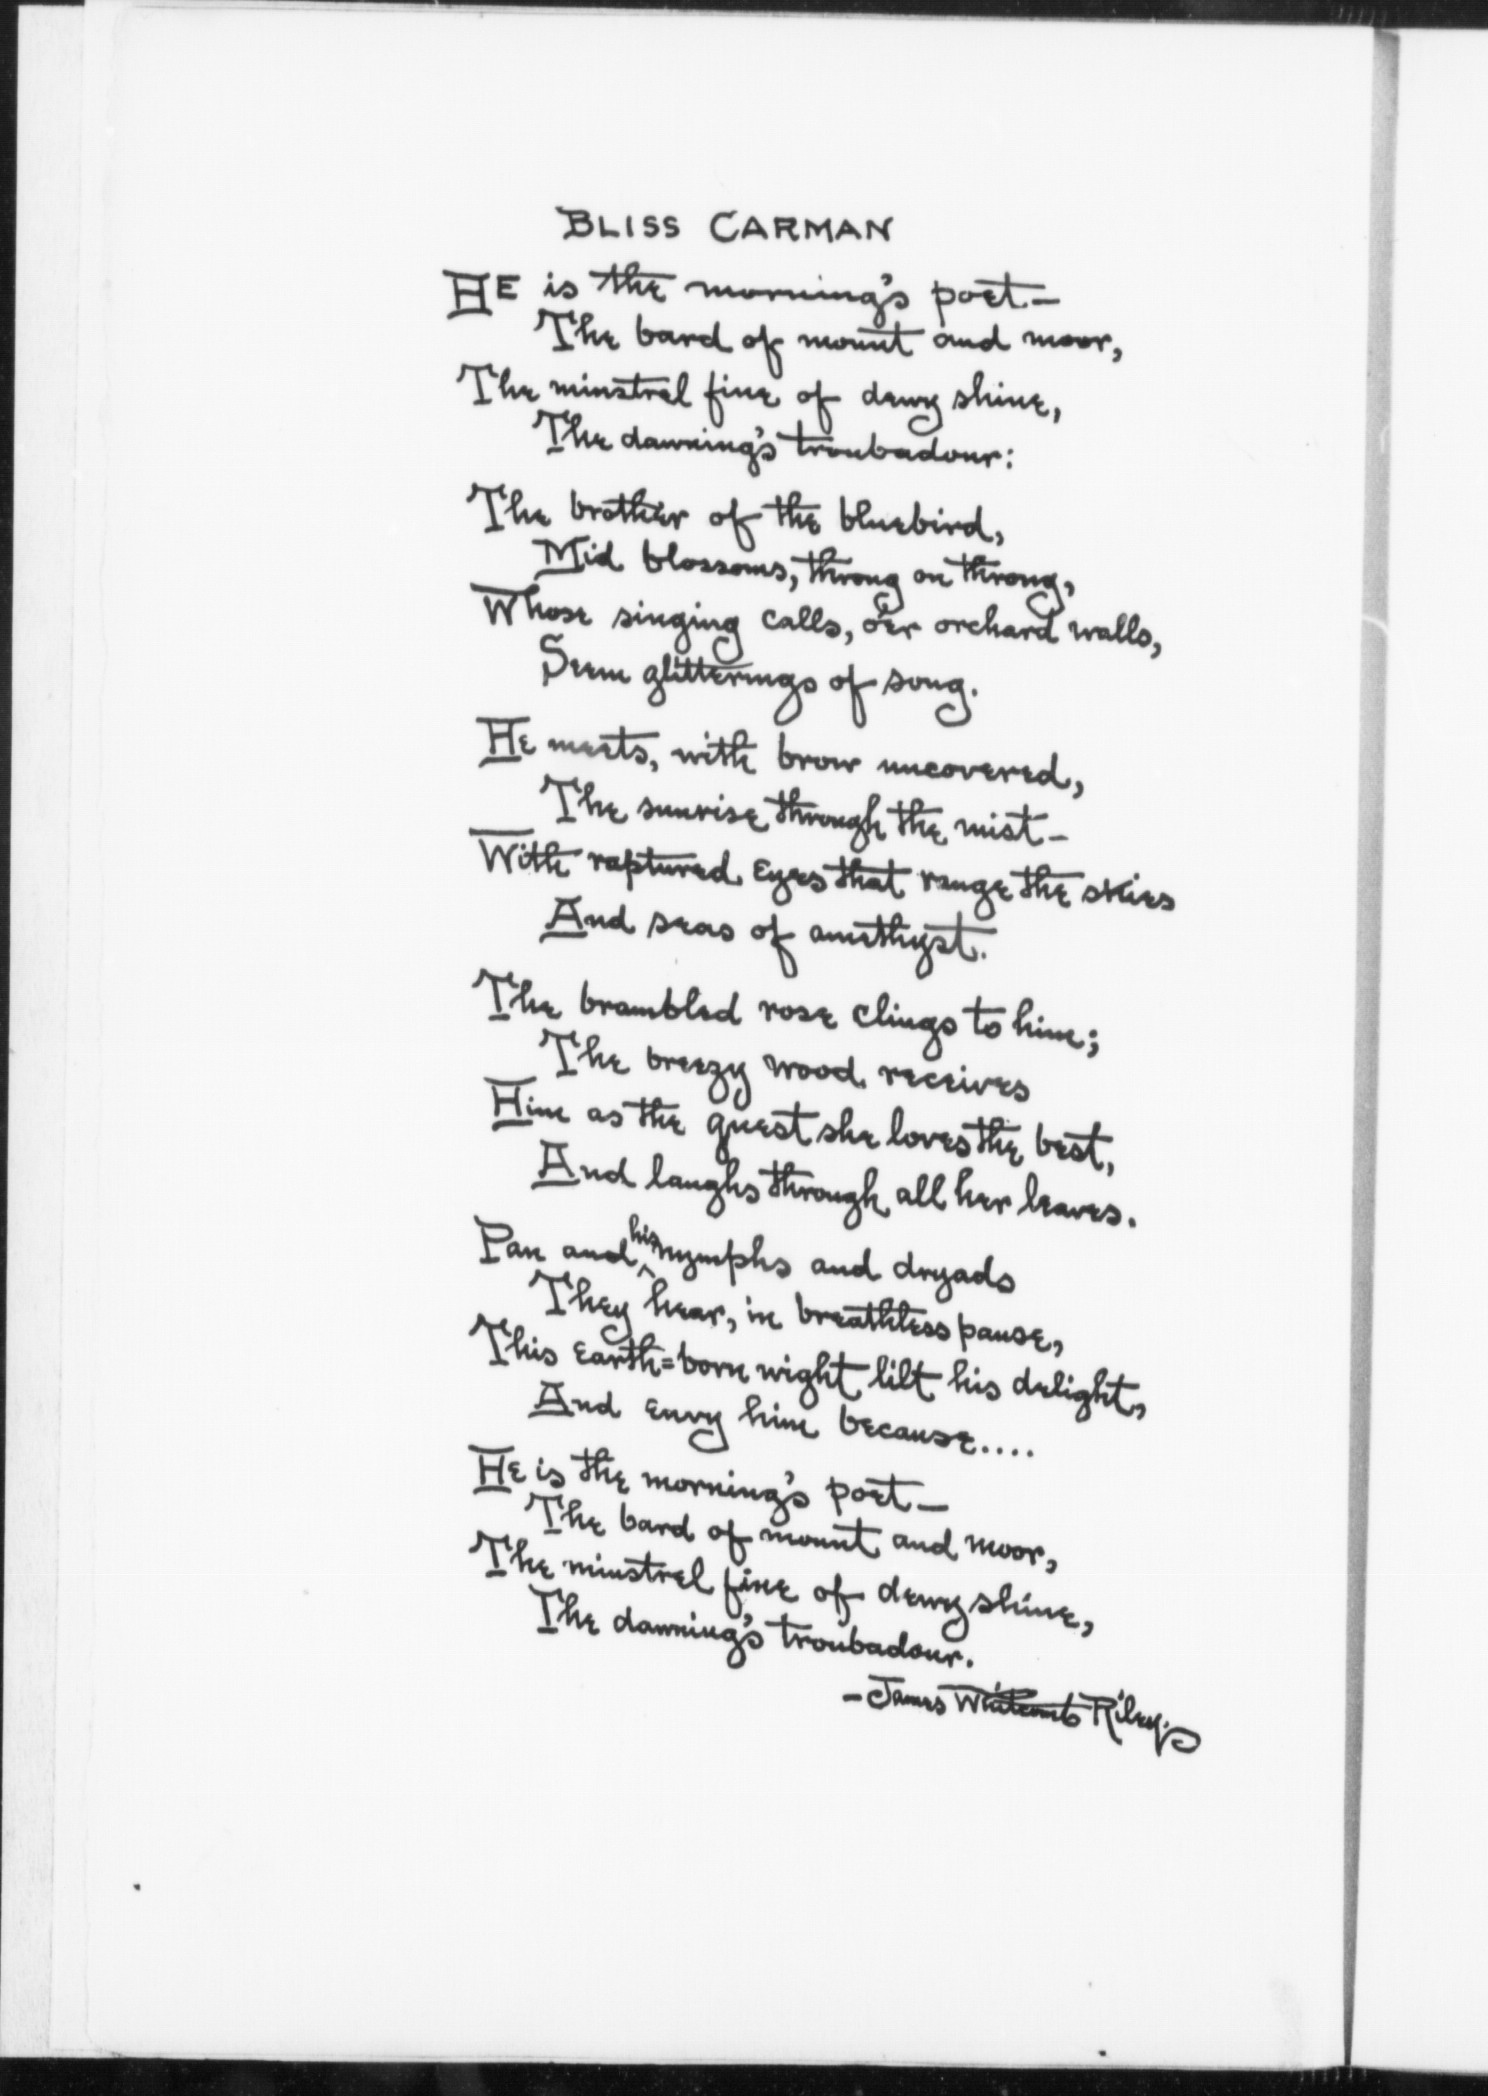 BLISS CARMAN
HE is the morning's poet—
The bard of mount and moor,
The minstrel fine of dewy shine,
The dawning's troubadour:
The brother of the bluebird,
Mid blossoms, throng on throng,
Whose singing calls, o'er orchard walls,
Seem glitterings of song.
He meets, with brow uncovered,
The sunrise through the mist—
With raptured eyes that range the skies
And seas of amethyst.
The brambled rose clings to him;
The breezy wood receives
Him as the guest she loves the best,
And laughs through all her leaves.
Pan and his nymphs and dryads
They hear, in breathless pause,
This earth=born wight lilt his delight,
And envy him because....
He is the morning's poet—
The bard of mount and moor,
The minstrel fine of dewy shine,
The dawning's troubadour.
—James Whitcomb Riley.